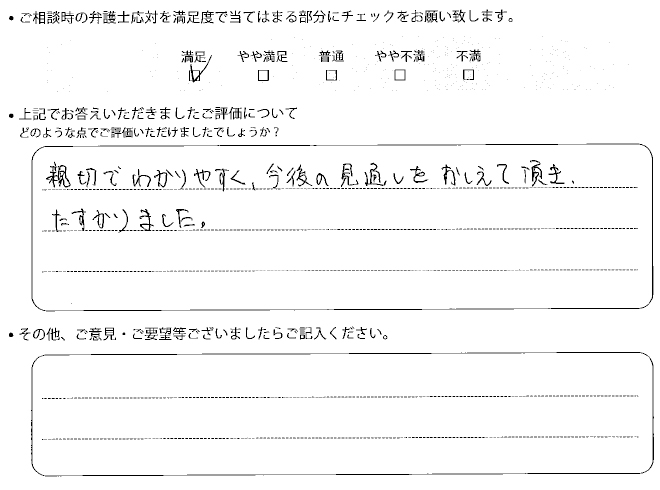 • ご相談時の弁護士応対を満足度で当てはまる部分にチェックをお願い致します。
満足 やや満足 普通 やや不満 不満
☑ □ □ □ □
• 上記でお答えいただきましたご評価について
どのような点でご評価いただけましたでしょうか？
親切でわかりやすく、今後の見通しをおしえて頂き、
たすかりました。
• その他、ご意見・ご要望等ございましたらご記入ください。